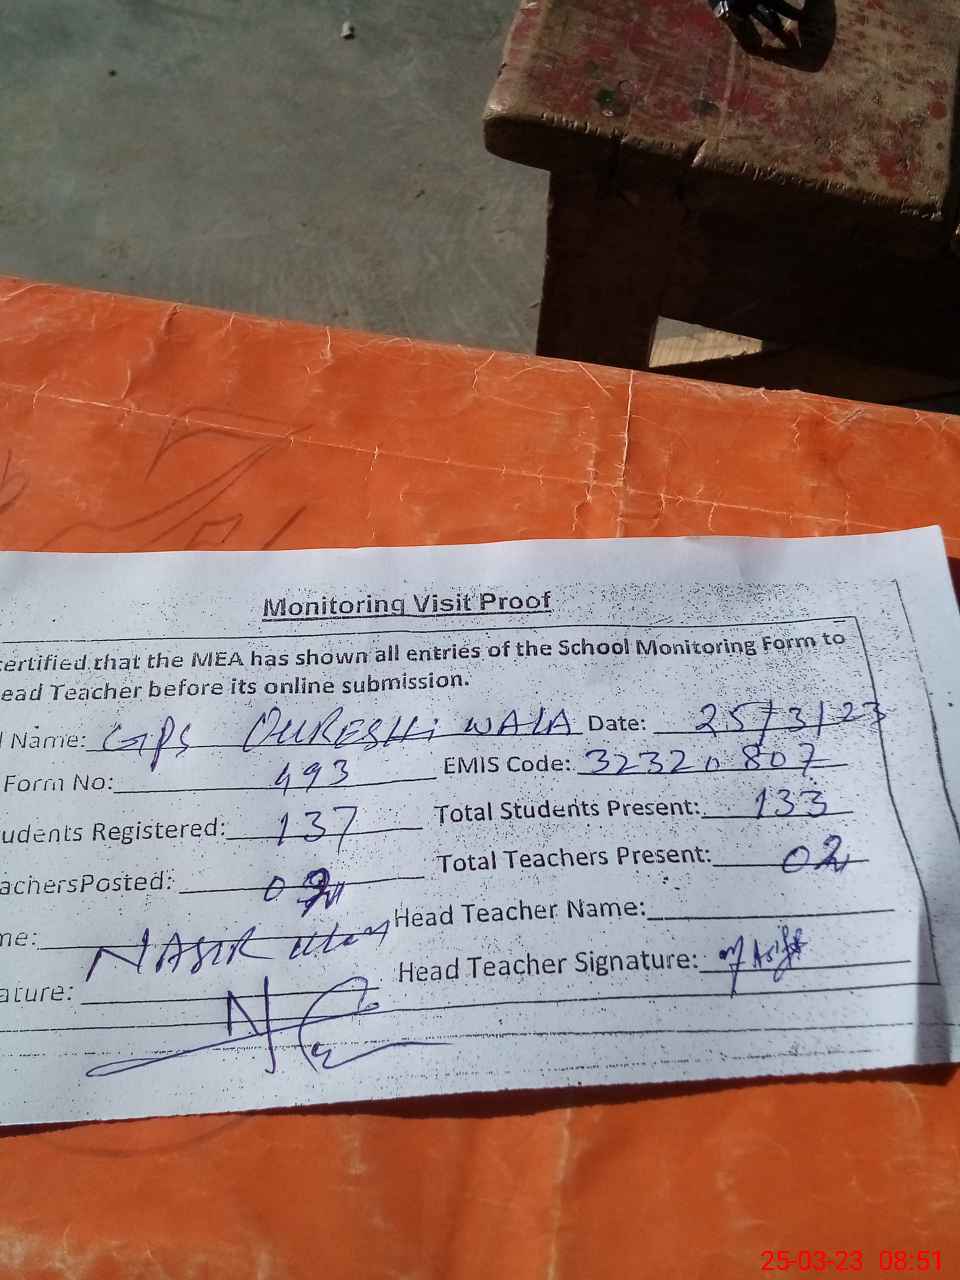 Monitoring Visit Proof
certified that the MEA has shown all entries of the School Monitoring Form to
ead Teacher before its online submission.
l Name: GPS QURESHi WALA Date: 25/3/23
Form No: 493 EMIS Code: 32320807
udents Registered: 137 Total Students Present: 133
achersPosted: 02 Total Teachers Present: 02
me: NASIR Head Teacher Name:
ature: Head Teacher Signature: M Asif
25-03-23 08:51